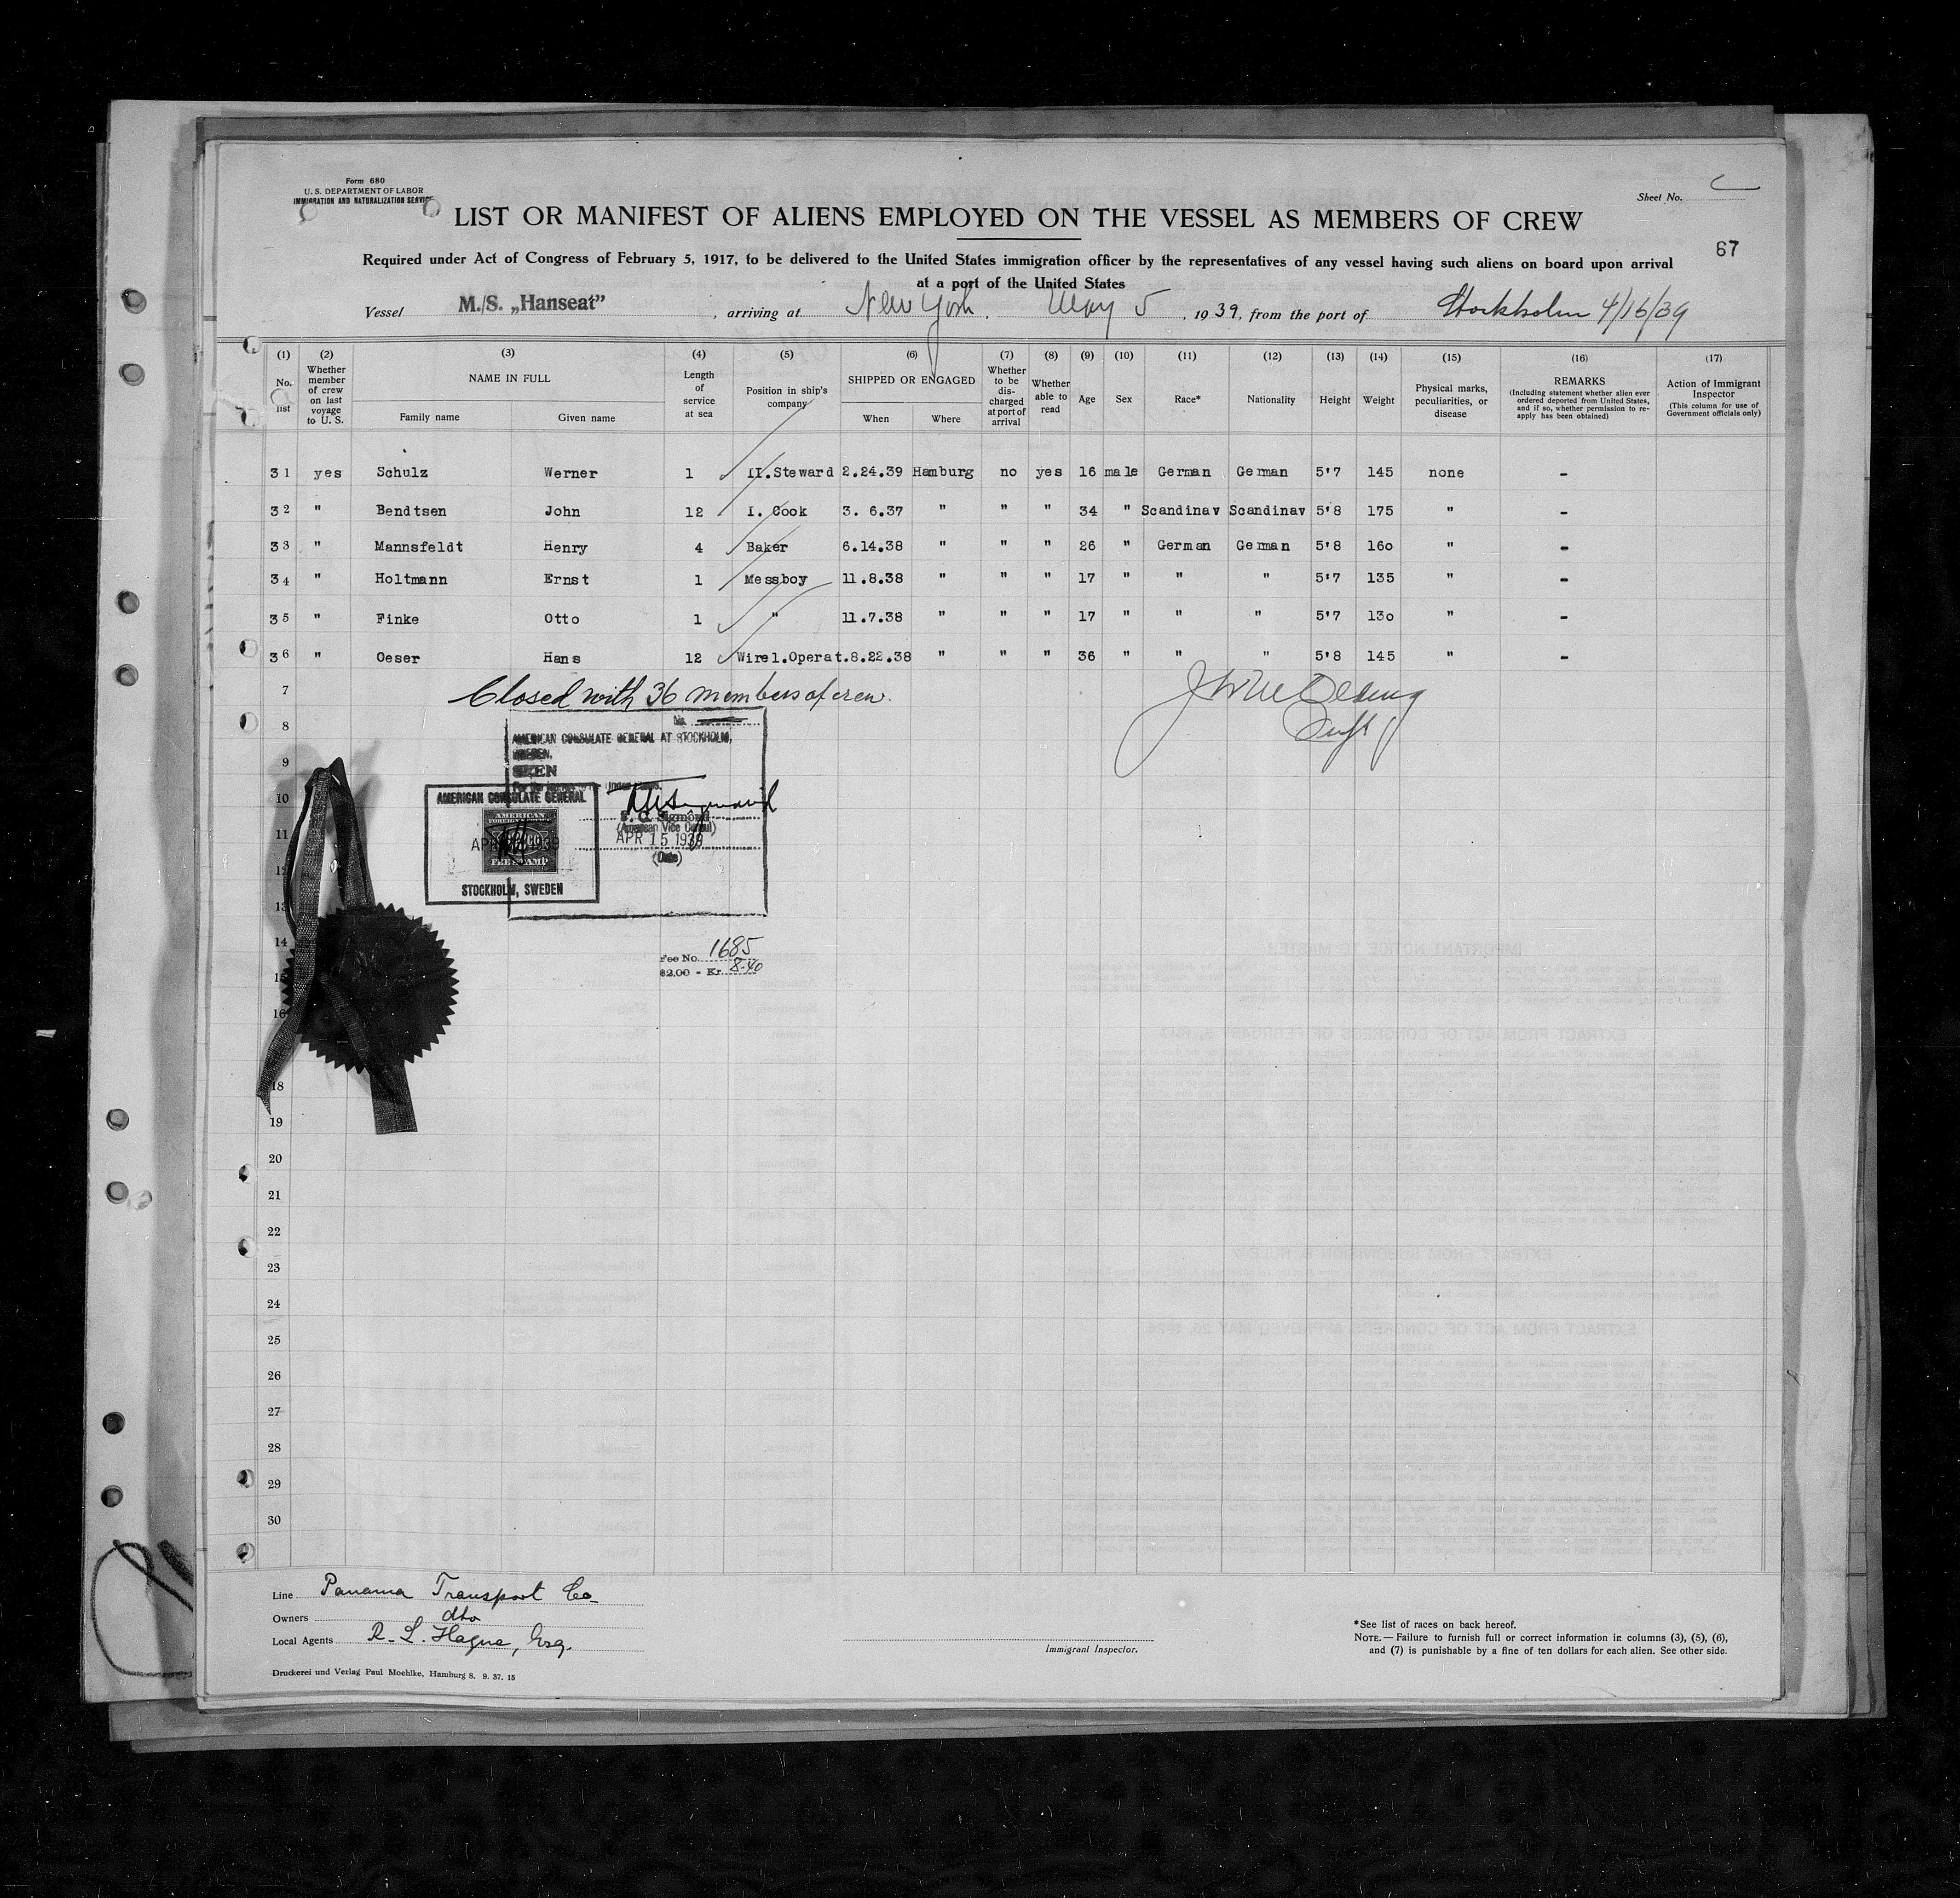 Form 680
U. S. DEPARTMENT OF LABOR
IMMIGRATION AND NATURALIZATION SERVICE
Sheet No.
LIST OR MANIFEST OF ALIENS EMPLOYED ON THE VESSEL AS MEMBERS OF CREW
67
Required under Act of Congress of February 5, 1917, to be delivered to the United States immigration officer by the representatives of any vessel having such aliens on board upon arrival
at a port of the United States
Vessel M./S. „Hanseat” , arriving at New York. May 5 , 1939, from the port of Stockholm 4/15/39
(1) (2) (3) (4) (5) (6) (7) (8) (9) (10) (11) (12) (13) (14) (15) (16) (17)
No. list
Whether member of crew on last voyage to U. S.
NAME IN FULL
Family name Given name
Length of service at sea
Position in ship's company
SHIPPED OR ENGAGED
When Where
Whether to be discharged at port of arrival
Whether able to read
Age
Sex
Race*
Nationality
Height
Weight
Physical marks, peculiarities, or disease
REMARKS
(Including statement whether alien ever ordered deported from United States, and if so, whether permission to re-apply has been obtained)
Action of Immigrant Inspector
(This column for use of Government officials only)
31 yes Schulz Werner 1 II.Steward 2.24.39 Hamburg no yes 16 male German German 5'7 145 none -
32 " Bendtsen John 12 I. Cook 3. 6.37 " " " 34 " Scandinav Scandinav 5'8 175 " -
33 " Mannsfeldt Henry 4 Baker 6.14.38 " " " 26 " German German 5'8 160 " -
34 " Holtmann Ernst 1 Messboy 11.8.38 " " " 17 " " " 5'7 135 " -
35 " Finke Otto 1 " 11.7.38 " " " 17 " " " 5'7 130 " -
36 " Oeser Hans 12 Wirel.Operat. 8.22.38 " " " 36 " " " 5'8 145 " -
7 Closed with 36 members of crew.
8
No.
AMERICAN CONSULATE GENERAL AT STOCKHOLM,
SWEDEN.
SEEN
9
10
AMERICAN CONSULATE GENERAL
AMERICAN
FEE STAMP
(American Vice Consul)
11
APR 15 1939
(Date)
12
STOCKHOLM, SWEDEN
13
14
Fee No. 1685
$2.00 = Kr. 8.40
15
16
18
19
20
21
22
23
24
25
26
27
28
29
30
Line Panama Transport Co.
Owners dto
Local Agents R. L. Hague, Esq.
Immigrant Inspector.
*See list of races on back hereof.
NOTE.—Failure to furnish full or correct information in columns (3), (5), (6),
and (7) is punishable by a fine of ten dollars for each alien. See other side.
Druckerei und Verlag Paul Moehlke, Hamburg 8. 9. 37. 15